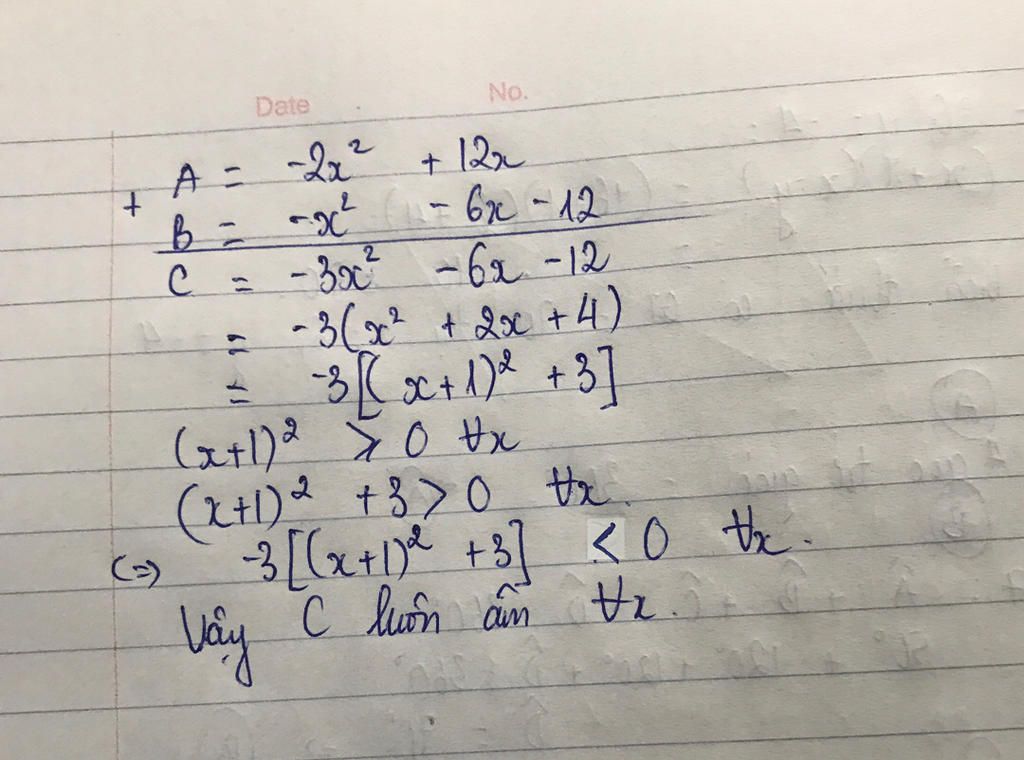 Date No.
A = -2x² + 12x
+
B = -x² - 6x - 12
C = -3x² - 6x - 12
= -3(x² + 2x + 4)
= -3[(x+1)² + 3]
(x+1)² ⩾ 0 ∀x
(x+1)² + 3 > 0 ∀x.
(=> -3[(x+1)² + 3] < 0 ∀x.
Vậy C luôn âm ∀x.